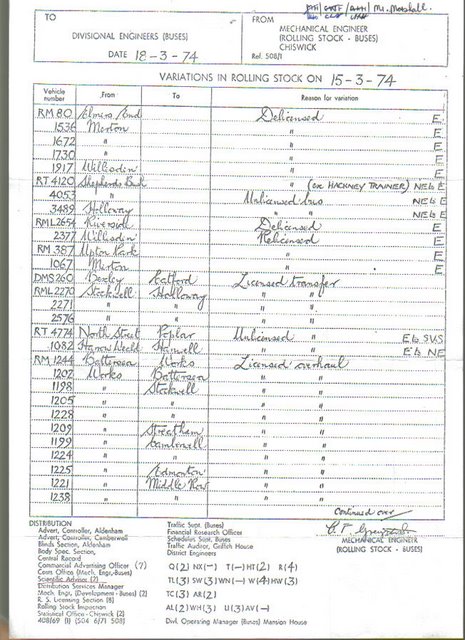 Mr. Marshall.
TO
DIVISIONAL ENGINEERS (BUSES)
DATE 18-3-74
FROM
MECHANICAL ENGINEER
(ROLLING STOCK - BUSES)
CHISWICK
Ref. 508/1
VARIATIONS IN ROLLING STOCK ON 15-3-74
Vehicle number From To Reason for variation
RM 80 Elmers End Delicensed E
1536 Merton " E
1672 " " E
1730 " " E
1917 Willesden " E
RT 4120 Shepherds Bush " (ex HACKNEY TRAINER) NEL E
4053 " Unlicensed bus NEL E
3489 Holloway " " NEL E
RML 2654 Riverside Delicensed E
2377 Willesden Relicensed E
RM 387 Upton Park " E
1067 Merton " E
DMS 260 Bexley Catford Licensed transfer
RML 2270 Stockwell Holloway " "
2271 " " " "
2576 " " " "
RT 4774 North Street Poplar Unlicensed " EL SUS
1082 Harrow Weald Hanwell " " EL NE
RM 1244 Battersea Works Licensed overhaul
1202 Works Battersea " "
1198 " Stockwell " "
1205 " " " "
1228 " " " "
1209 " Streatham " "
1199 " Camberwell " "
1224 " " " "
1225 " Edmonton " "
1221 " Middle Row " "
1238 " " " "
Continued over
MECHANICAL ENGINEER
(ROLLING STOCK - BUSES)
DISTRIBUTION
Advert, Controller, Aldenham
Advert, Controller, Camberwell
Blinds Section, Aldenham
Body Spec, Section,
Central Record
Commercial Advertising Officer (7)
Costs Office (Mech, Engr, Buses)
Scientific Advisor (2)
Distribution Services Manager
Mech, Engr, (Development - Buses) (2)
R. S. Licensing Section (8)
Rolling Stock Inspection
Statistical Office - Chiswick (2)
408/69 (1) (504 6/71 508)
Traffic Supt. (Buses)
Financial Research Officer
Schedules Supt. Buses
Traffic Auditor, Griffith House
District Engineers
Q(2) NX(-) T(-) HT(2) R(4)
TL(3) SW(3) WN(-) W(4) HW(3)
TC(3) AR(2)
AL(2) WH(3) U(3) AV(-)
Divl. Operating Manager (Buses) Mansion House